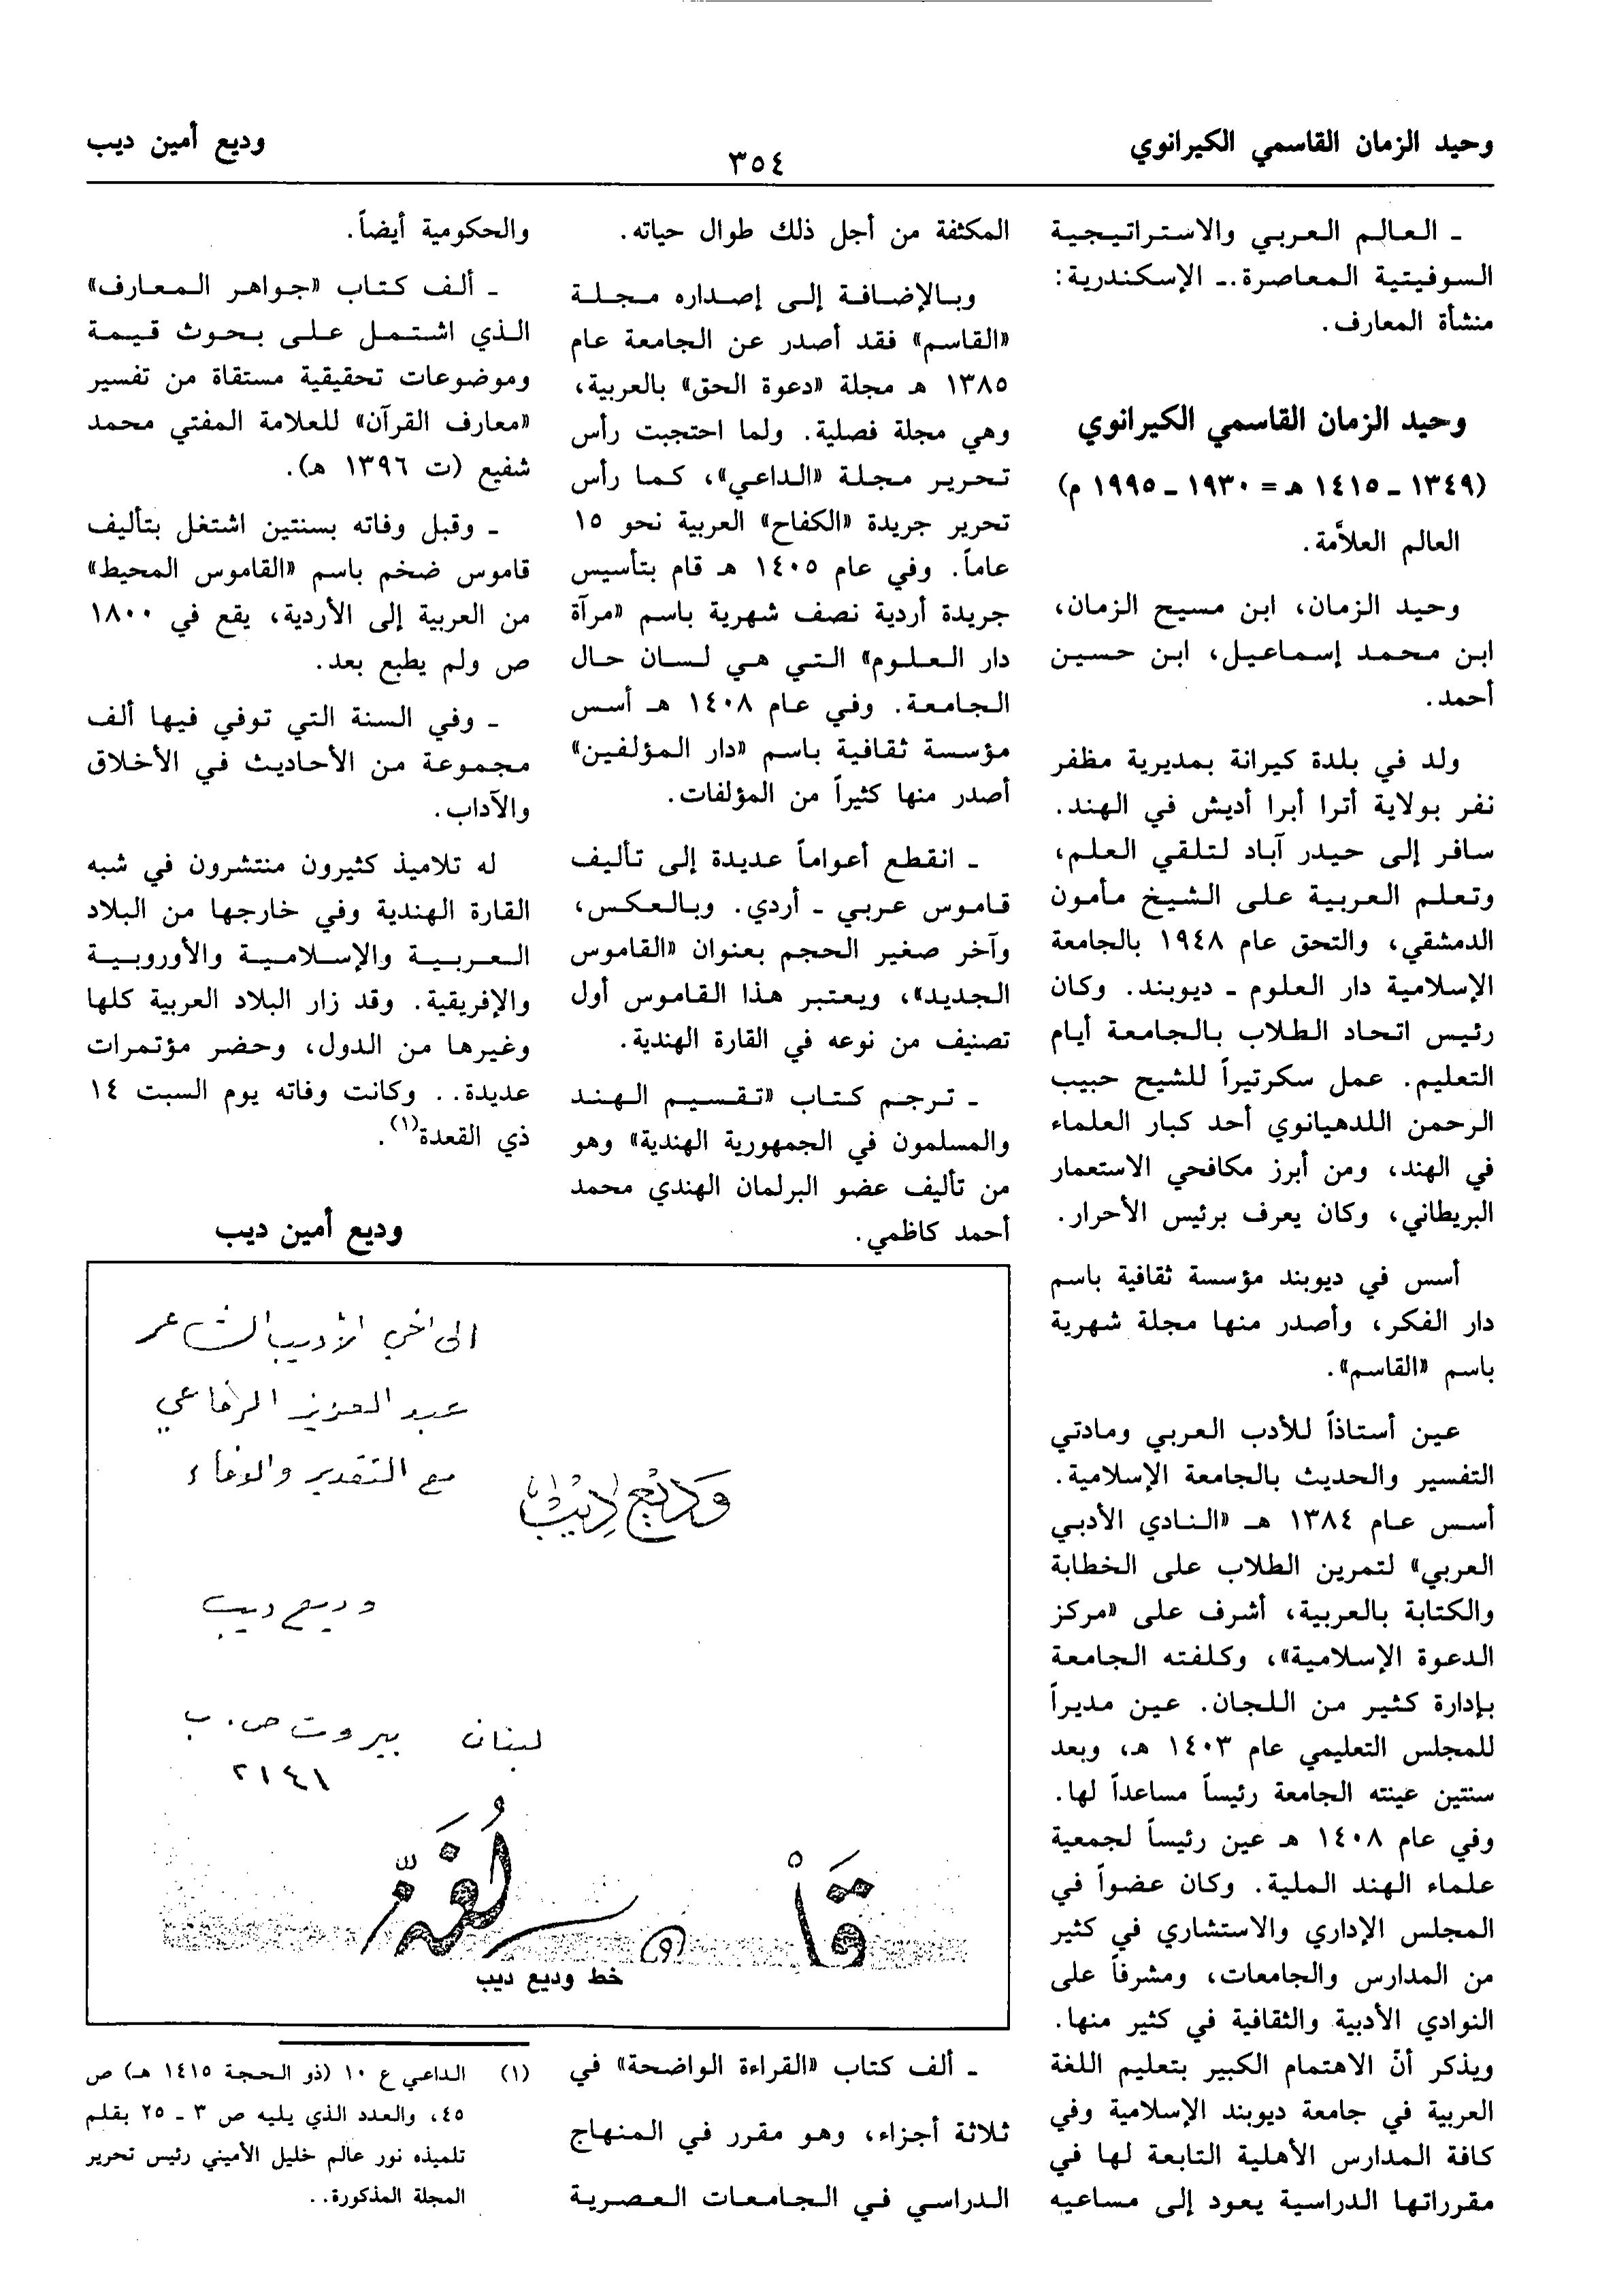 وحيد الزمان القاسمي الكيرانوي
٣٥٤
وديع أمين ديب
ـ العالم العربي والاستراتيجية
السوفيتية المعاصرة.ـ الإسكندرية:
منشأة المعارف.
وحيد الزمان القاسمي الكيرانوي
(١٣٤٩ ـ ١٤١٥ هـ = ١٩٣٠ ـ ١٩٩٥ م)
العالم العلاَّمة.
وحيد الزمان، ابن مسيح الزمان،
ابن محمد إسماعيل، ابن حسين
أحمد.
ولد في بلدة كيرانة بمديرية مظفر
نفر بولاية أترا أبرا أديش في الهند.
سافر إلى حيدر آباد لتلقي العلم،
وتعلم العربية على الشيخ مأمون
الدمشقي، والتحق عام ١٩٤٨ بالجامعة
الإسلامية دار العلوم ـ ديوبند. وكان
رئيس اتحاد الطلاب بالجامعة أيام
التعليم. عمل سكرتيراً للشيح حبيب
الرحمن اللدهيانوي أحد كبار العلماء
في الهند، ومن أبرز مكافحي الاستعمار
البريطاني، وكان يعرف برئيس الأحرار.
أسس في ديوبند مؤسسة ثقافية باسم
دار الفكر، وأصدر منها مجلة شهرية
باسم «القاسم».
عين أستاذاً للأدب العربي ومادتي
التفسير والحديث بالجامعة الإسلامية.
أسس عام ١٣٨٤ هـ «النادي الأدبي
العربي» لتمرين الطلاب على الخطابة
والكتابة بالعربية، أشرف على «مركز
الدعوة الإسلامية»، وكلفته الجامعة
بإدارة كثير من اللجان. عين مديراً
للمجلس التعليمي عام ١٤٠٣ هـ، وبعد
سنتين عينته الجامعة رئيساً مساعداً لها.
وفي عام ١٤٠٨ هـ عين رئيساً لجمعية
علماء الهند الملية. وكان عضواً في
المجلس الإداري والاستشاري في كثير
من المدارس والجامعات، ومشرفاً على
النوادي الأدبية والثقافية في كثير منها.
ويذكر أنّ الاهتمام الكبير بتعليم اللغة
العربية في جامعة ديوبند الإسلامية وفي
كافة المدارس الأهلية التابعة لها في
مقرراتها الدراسية يعود إلى مساعيه
المكثفة من أجل ذلك طوال حياته.
وبالإضافة إلى إصداره مجلة
«القاسم» فقد أصدر عن الجامعة عام
١٣٨٥ هـ مجلة «دعوة الحق» بالعربية،
وهي مجلة فصلية. ولما احتجبت رأس
تحرير مجلة «الداعي»، كما رأس
تحرير جريدة «الكفاح» العربية نحو ١٥
عاماً. وفي عام ١٤٠٥ هـ قام بتأسيس
جريدة أردية نصف شهرية باسم «مرآة
دار العلوم» التي هي لسان حال
الجامعة. وفي عام ١٤٠٨ هـ أسس
مؤسسة ثقافية باسم «دار المؤلفين»
أصدر منها كثيراً من المؤلفات.
ـ انقطع أعواماً عديدة إلى تأليف
قاموس عربي ـ أردي. وبالعكس،
وآخر صغير الحجم بعنوان «القاموس
الجديد»، ويعتبر هذا القاموس أول
تصنيف من نوعه في القارة الهندية.
ـ ترجم كتاب «تقسيم الهند
والمسلمون في الجمهورية الهندية» وهو
من تأليف عضو البرلمان الهندي محمد
أحمد كاظمي.
ـ ألف كتاب «القراءة الواضحة» في
ثلاثة أجزاء، وهو مقرر في المنهاج
الدراسي في الجامعات العصرية
والحكومية أيضاً.
ـ ألف كتاب «جواهر المعارف»
الذي اشتمل على بحوث قيمة
وموضوعات تحقيقية مستقاة من تفسير
«معارف القرآن» للعلامة المفتي محمد
شفيع (ت ١٣٩٦ هـ).
ـ وقبل وفاته بسنتين اشتغل بتأليف
قاموس ضخم باسم «القاموس المحيط»
من العربية إلى الأردية، يقع في ١٨٠٠
ص ولم يطبع بعد.
ـ وفي السنة التي توفي فيها ألف
مجموعة من الأحاديث في الأخلاق
والآداب.
له تلاميذ كثيرون منتشرون في شبه
القارة الهندية وفي خارجها من البلاد
العربية والإسلامية والأوروبية
والإفريقية. وقد زار البلاد العربية كلها
وغيرها من الدول، وحضر مؤتمرات
عديدة.. وكانت وفاته يوم السبت ١٤
ذي القعدة(١).
وديع أمين ديب
الى اخي الأديب الشاعر
عبد العزيز الرفاعي
مع التقدير والوفاء
وديع ديب
وديع ديب
لبنان بيروت ص. ب
٢١٤١
لغة
خط وديع ديب
(١) الداعي ع ١٠ (ذو الحجة ١٤١٥ هـ) ص
٤٥، والعدد الذي يليه ص ٣ ـ ٢٥ بقلم
تلميذه نور عالم خليل الأميني رئيس تحرير
المجلة المذكورة..